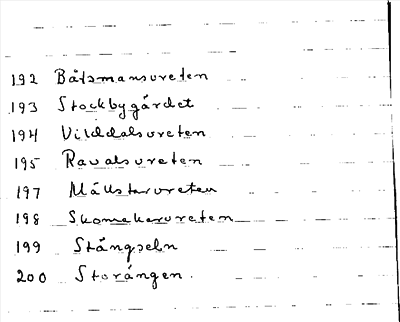 192 Båtsmansvreten
193 Stockbygärdet
194 Vilddalsvreten
195 Ravalsvreten
197
198 Skomakarvreten
199
200 Storängen.